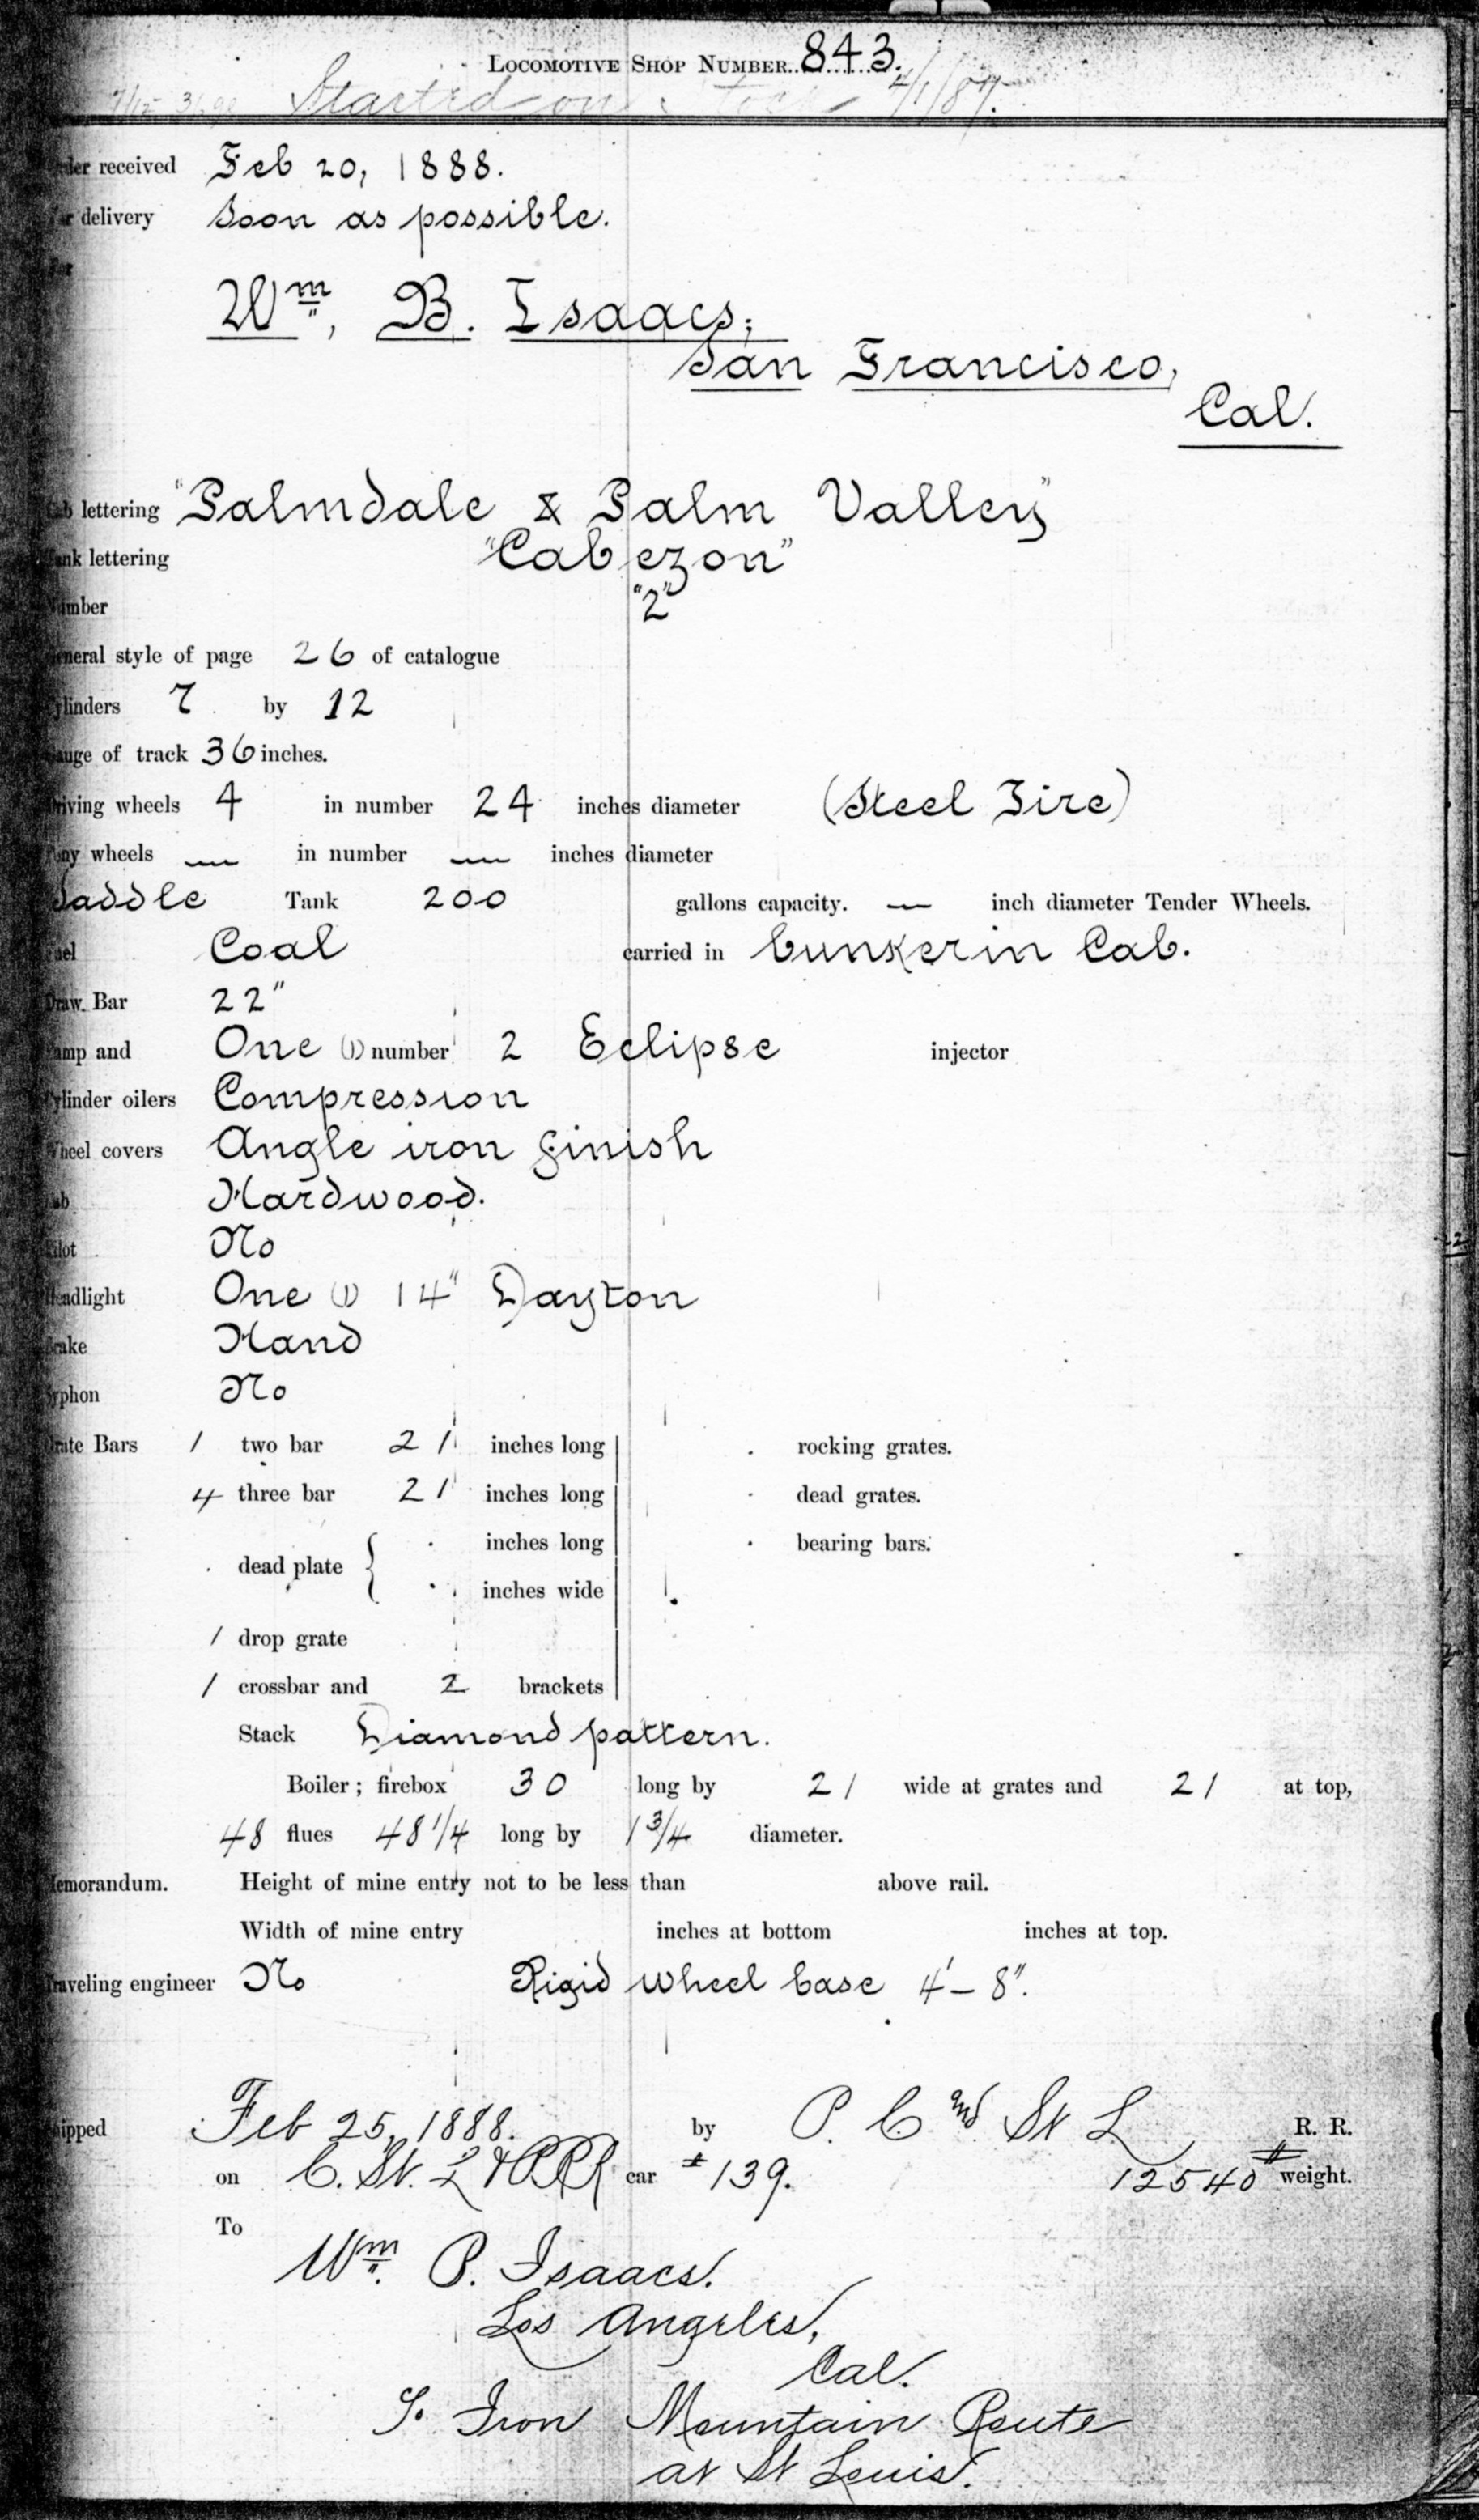 LOCOMOTIVE SHOP NUMBER 843.
Started on 4/1/87.
Order received Feb 20, 1888.
For delivery Soon as possible.
For
Wm, B. Isaacs;
San Francisco,
Cal.
Cab lettering "Palmdale & Palm Valley"
Tank lettering "Cabezon"
Number "2"
General style of page 26 of catalogue
Cylinders 7 by 12
Gauge of track 36 inches.
Driving wheels 4 in number 24 inches diameter (Steel Tire)
Pony wheels — in number — inches diameter
Saddle Tank 200 gallons capacity. — inch diameter Tender Wheels.
Fuel Coal carried in bunker in Cab.
Draw Bar 22"
Pump and One (1) number 2 Eclipse injector
Cylinder oilers Compression
Wheel covers Angle iron finish
Cab Hardwood.
Pilot No
Headlight One (1) 14" Dayton
Brake Hand
Syphon No
Grate Bars 1 two bar 21 inches long rocking grates.
4 three bar 21 inches long dead grates.
inches long bearing bars.
dead plate {
inches wide
1 drop grate
1 crossbar and 2 brackets
Stack Diamond pattern.
Boiler; firebox 30 long by 21 wide at grates and 21 at top,
48 flues 48 1/4 long by 1 3/4 diameter.
Memorandum. Height of mine entry not to be less than above rail.
Width of mine entry inches at bottom inches at top.
Traveling engineer No Rigid wheel base 4'–8".
Shipped Feb 25, 1888. by P. C and St L R. R.
on C. St. L & P RR car #139. 12540 # weight.
To
Wm. P. Isaacs.
Los Angeles,
Cal.
Iron Mountain Route
at St Louis.